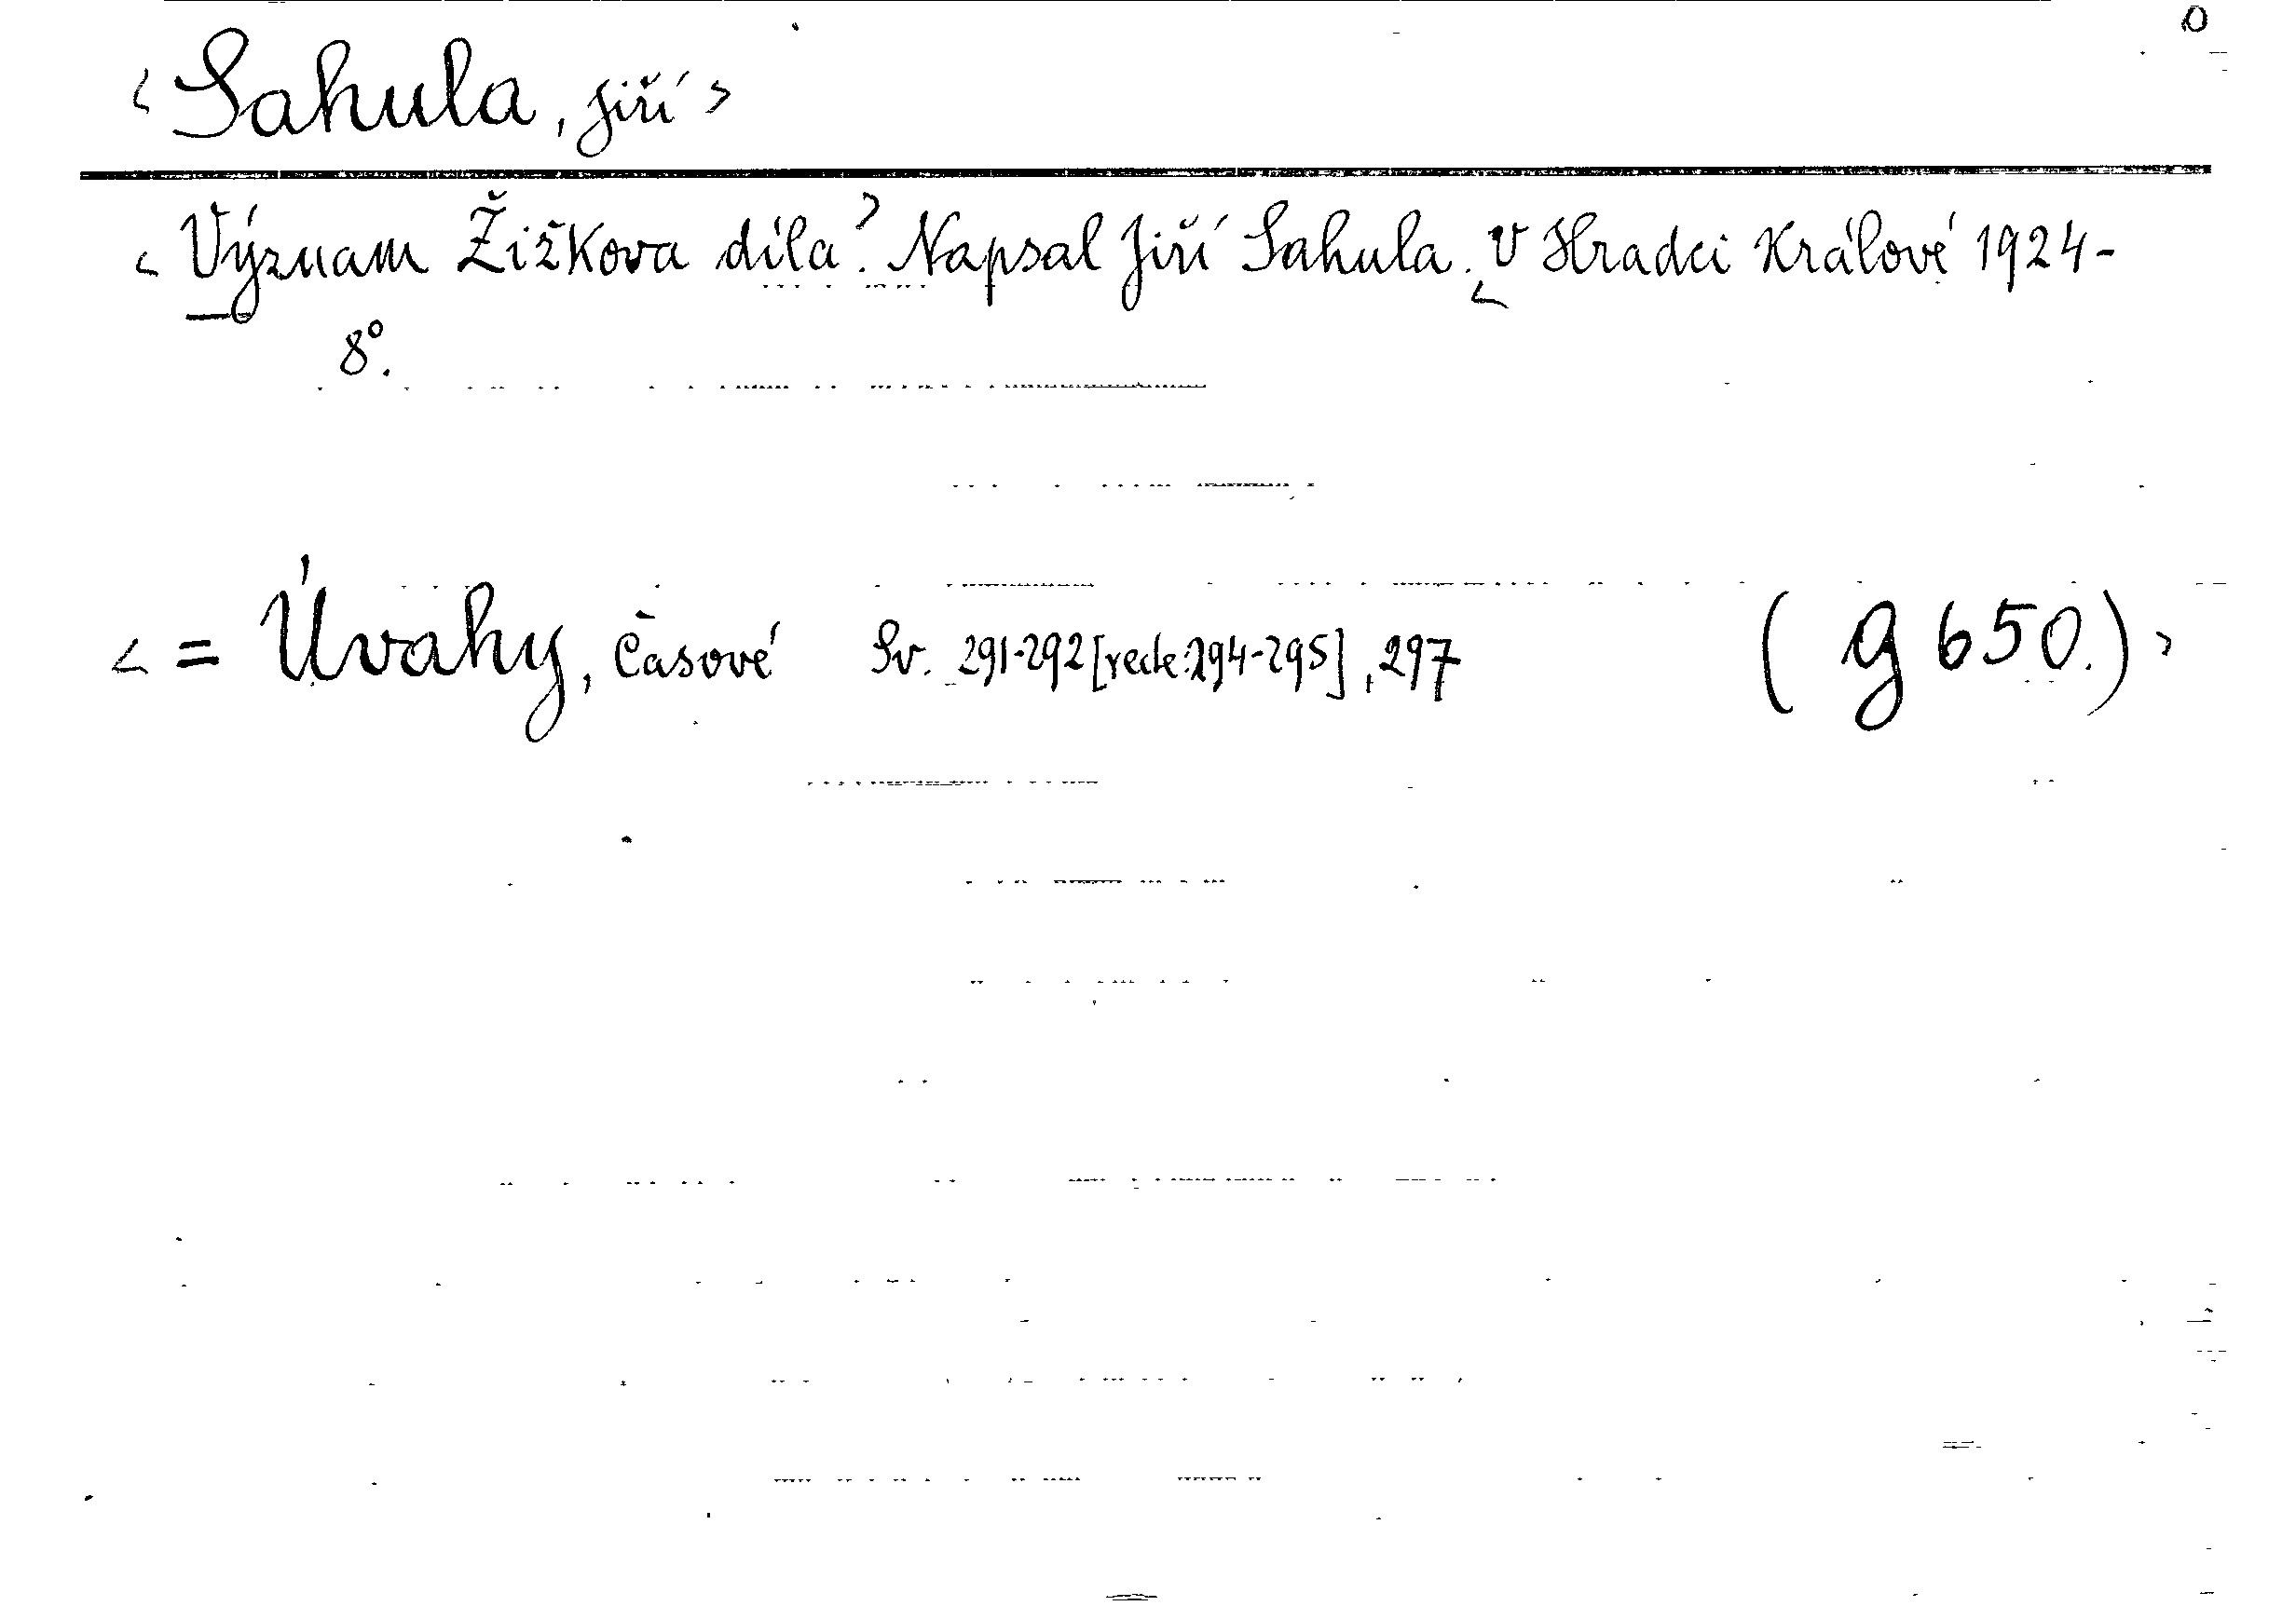 0
< Sahula, Jiří >
< Význam Žižkova díla?. Napsal Jiří Sahula. V Hradci Králové 1924-
8°.
< = Úvahy, Časové Sv. 291-292 [recte: 294-295], 297 ( g 650.) >